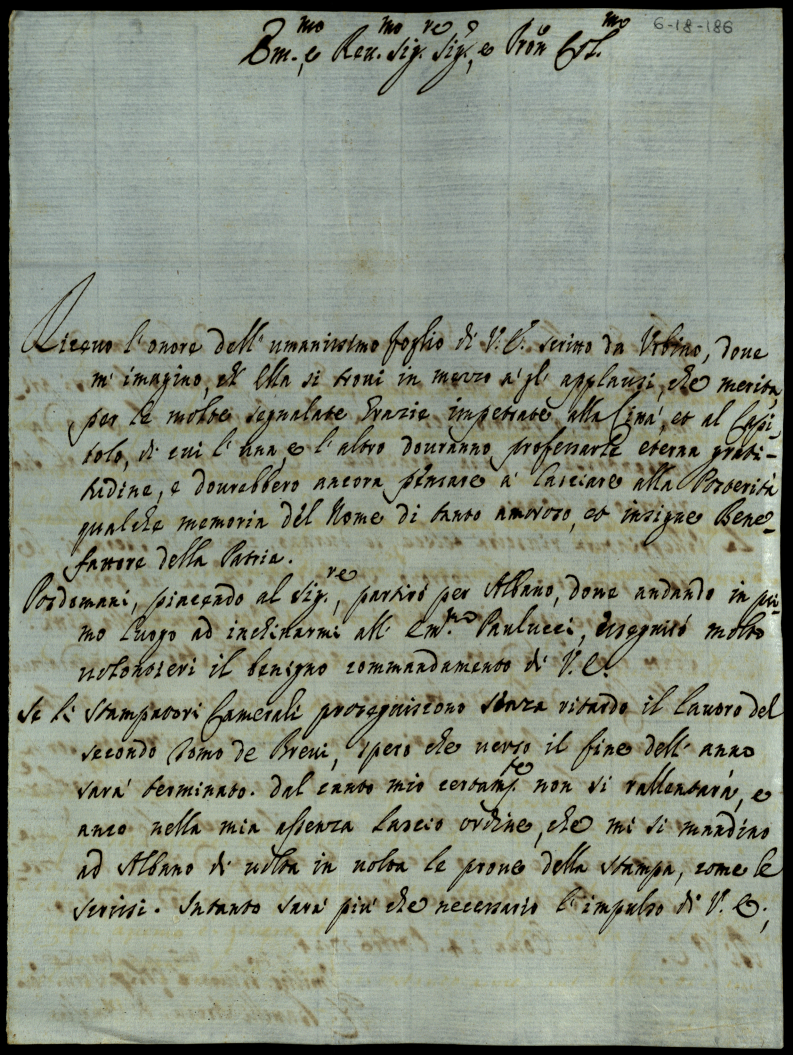 6-18-186
Em.mo, e Reu.mo Sig.re Sig.re, e Pron Col.mo
Riceuo l'onore dell'umanissimo foglio di V.E. scritto da Vrbino, doue
m'imagino, ch'Ella si troui in mezzo a'gl'applausi, che merita,
per le molte segnalate Grazie impetrate alla Città, et al Capi-
tolo, di cui l'una, e l'altro douranno professarle eterna grati-
tudine, e dourebbero ancora pensare a' lasciare alla Posterità
qualche memoria del Nome di tanto amoroso, et insigne Bene-
fattore della Patria.
Posdomani, piacendo al Sig.re, partirò per Albano, doue andando in pri-
mo luogo ad inchinarmi all'Em.mo Paulucci, eseguirò molto
uolontieri il benigno commandamento di V.E.
Se li Stampatori Camerali proseguiscono senza ritardo il lauoro del
secondo Tomo de Breui, spero che uerso il fine dell'anno
sarà terminato. Dal canto mio certam.te non si rallentarà, e
anco nella mia assenza lascio ordine, che mi si mandino
ad Albano di uolta in uolta le proue della stampa, come le
scrissi. Intanto sarà più che necessario l'impulso di V.E.,